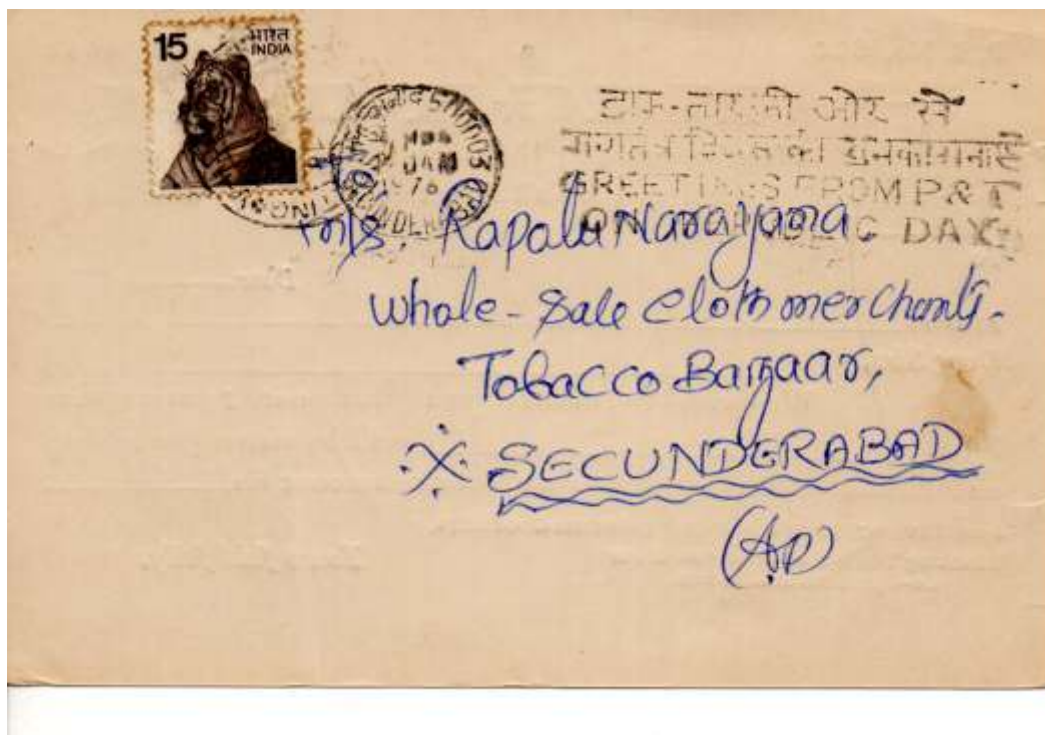 15 भारत
INDIA
JAN
1976
डाक-तार की ओर से
गणतंत्र दिवस की शुभकामनाएँ
GREETINGS FROM P & T
ON REPUBLIC DAY
M/s. Rapalu Narayana
Whole-Sale Cloth merchants.
Tobacco Bazaar,
SECUNDERABAD
(A.P)